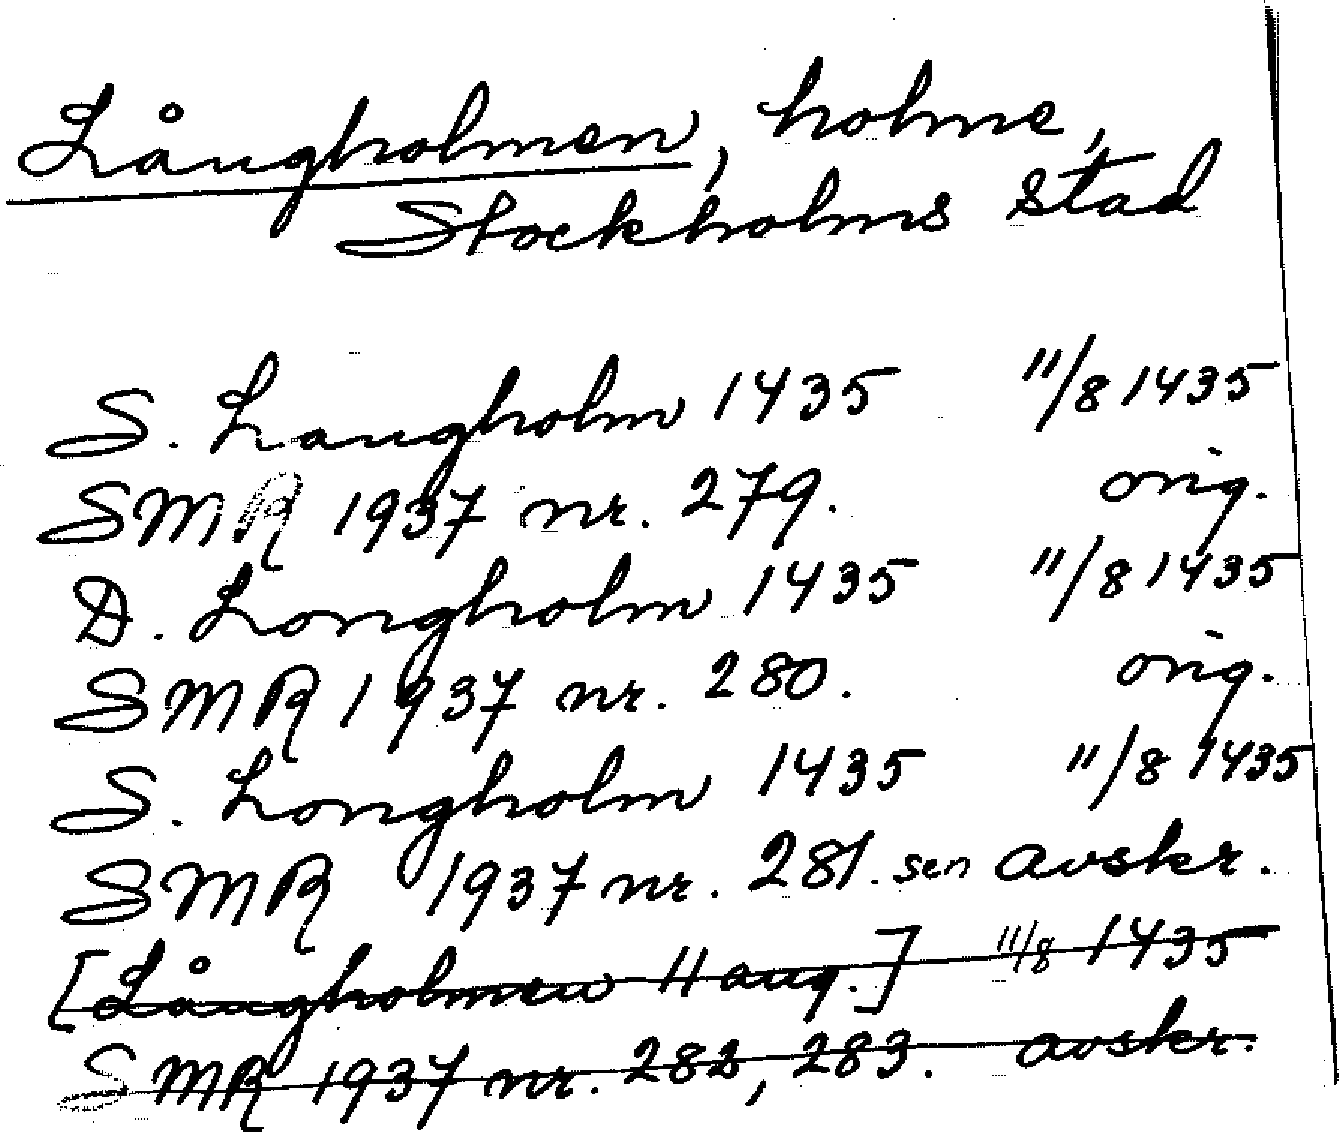 Långholmen, holme,
Stockholms stad
S. Langholm 1435 11/8 1435
SMR 1937 nr. 279. orig.
D. Longholm 1435 11/8 1435
SMR 1937 nr. 280. orig.
S. Longholm 1435 11/8 1435
SMR 1937 nr. 281. sen avskr.
[Långholmen 11 aug.] 11/8 1435
SMR 1937 nr. 282, 283. avskr.